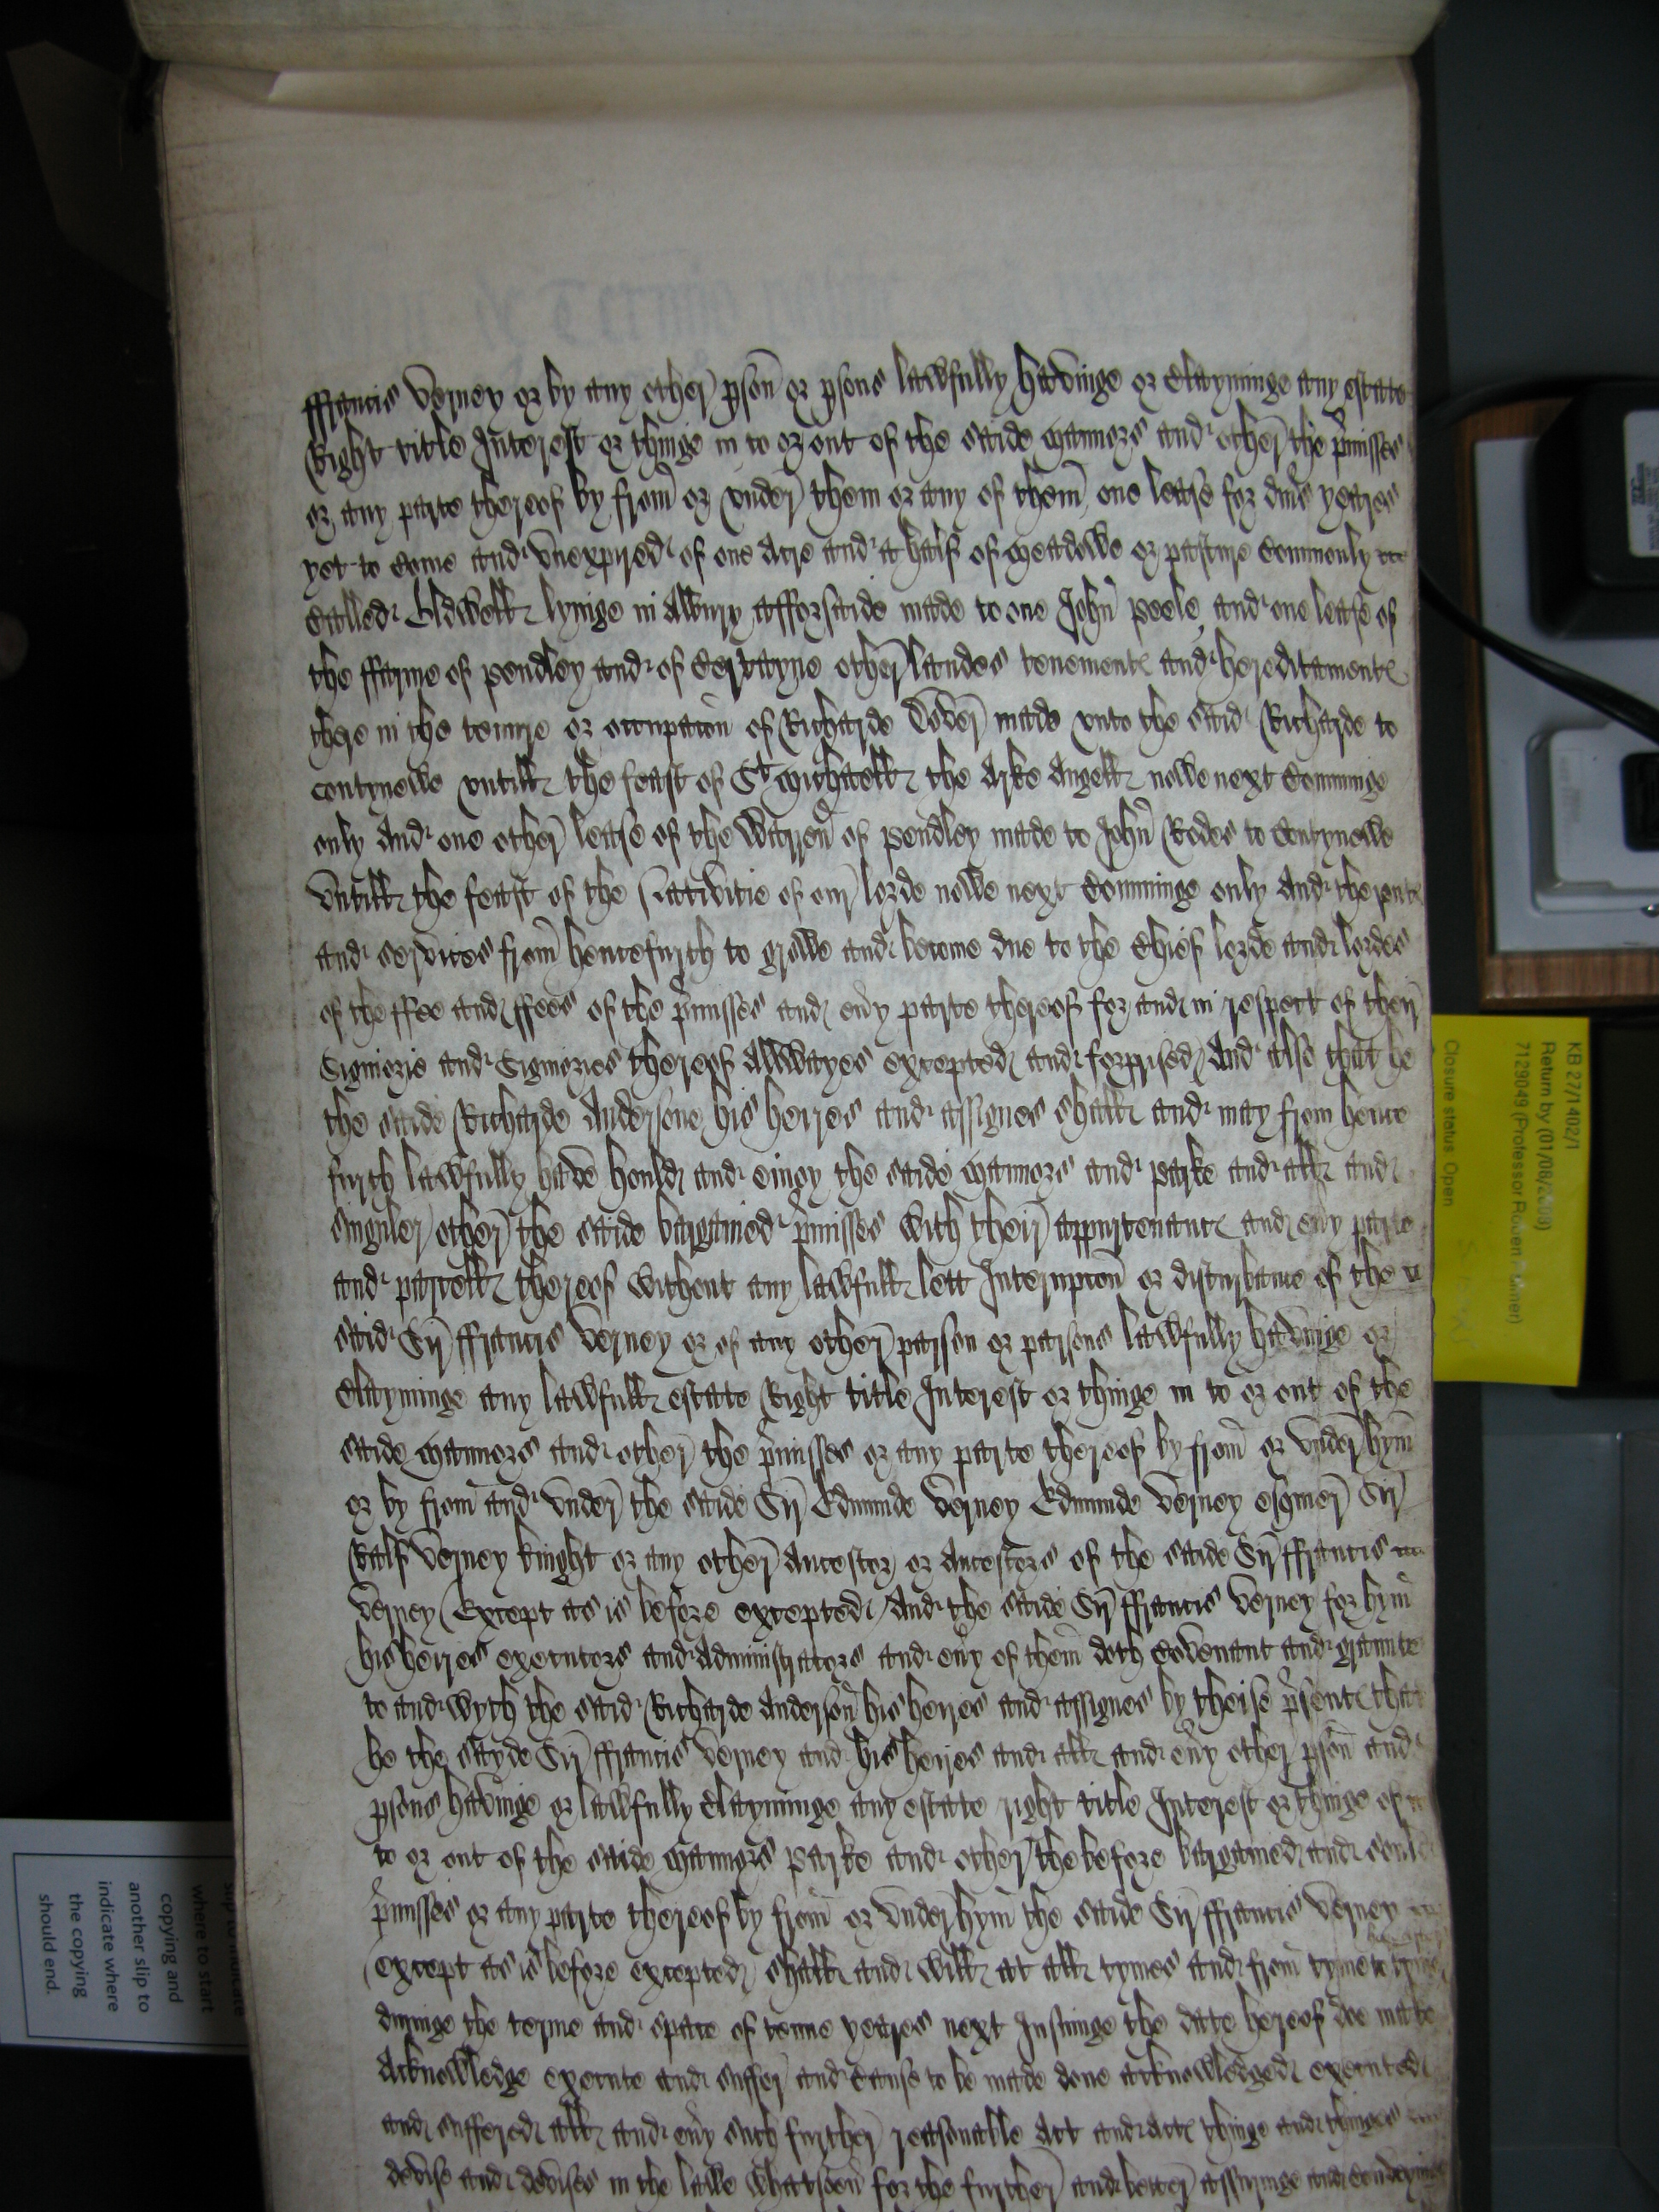 ffrancis Verney or by any other pson or psons lawfully havinge or Clayminge any estate
Right title Interest or thinge in to or out of the saide Mannors and other the pmisses
or any parte thereof by from or vnder them or any of them, one lease for divs yeares
yet to Come and vnexpired of one Acre and a half of Meadowe or pasture Commonly
Called lynge in Albury afforsaide made to one John Poole, and one lease of
the ffarme of Pendley and of Certayne other landes tenement and hereditament
there in the tenure or occupacon of Richarde Dover made vnto the said Richarde to
contynewe vntill the feast of St Michaell the Arke Angell nowe next Comminge
only And one other lease of the Warren of Pendley made to John Rodes to Contynewe
Vntill the feast of the Nativitie of our lorde nowe next Comminge only And the rent
and services from hencefurth to growe and become due to the Chief lorde and lordes
of the ffee and ffees of the pmisses and evy parte thereof for and in respect of their
Signiorie and Signiories thereof Allwayes excepted and forprised And also that he
the saide Richarde Andersone his heires and assignes shall and may from hence
furth lawfully have hould and enioy the saide Mannors and Parke and all and
singuler other the saide bargained pmisses with their appurtenanc and evy parte
and parcell thereof without any lawfull lett Interupcon or disturbance of the
said Sir ffrancis Verney or of any other parson or parsons lawfully havinge or
Clayminge any lawfull estate Right title Interest or thinge in to or out of the
saide Mannors and other the pmisses or any parte thereof by from or vnder hym
or by from and vnder the saide Sir Edmunde Verney Edmunde Verney esquier Sir
Ralf Verney knight or any other Ancestor or Ancestors of the saide Sir ffrancis
Verney (Except as is before excepted) And the saide Sir ffrancis Verney for hym
his heires executors and Administrators and evy of them doth Covenant and graunte
to and wyth the said Richarde Anderson his heires and assignes by theise psent that
he the sayde Sir ffrancis Verney and his heires and all and evy other pson and
psons havinge or lawfully Clayminge any estate right title Interest or thinge of
to or out of the saide Mannors Parke and other the before bargained and sould
pmisses or any parte thereof by from or vnder hym the saide Sir ffrancis Verney
(except as is before excepted) shall and will at all tymes and from tyme to tyme
duringe the terme and space of tenne yeares next Insuinge the date hereof doe make
Acknowledge execute and suffer and Cause to be made done acknowledged executed
and suffered all and evy such further reasonable Act and act thinge and thinges
devise and devises in the lawe whatsoev for the further and better assuringe and Conveyinge
KB 27/1402/1
Return by (01/08/2008)
7129049 (Professor Robert Palmer)
Closure status Open
where to start
copying and
another slip to
indicate where
the copying
should end.